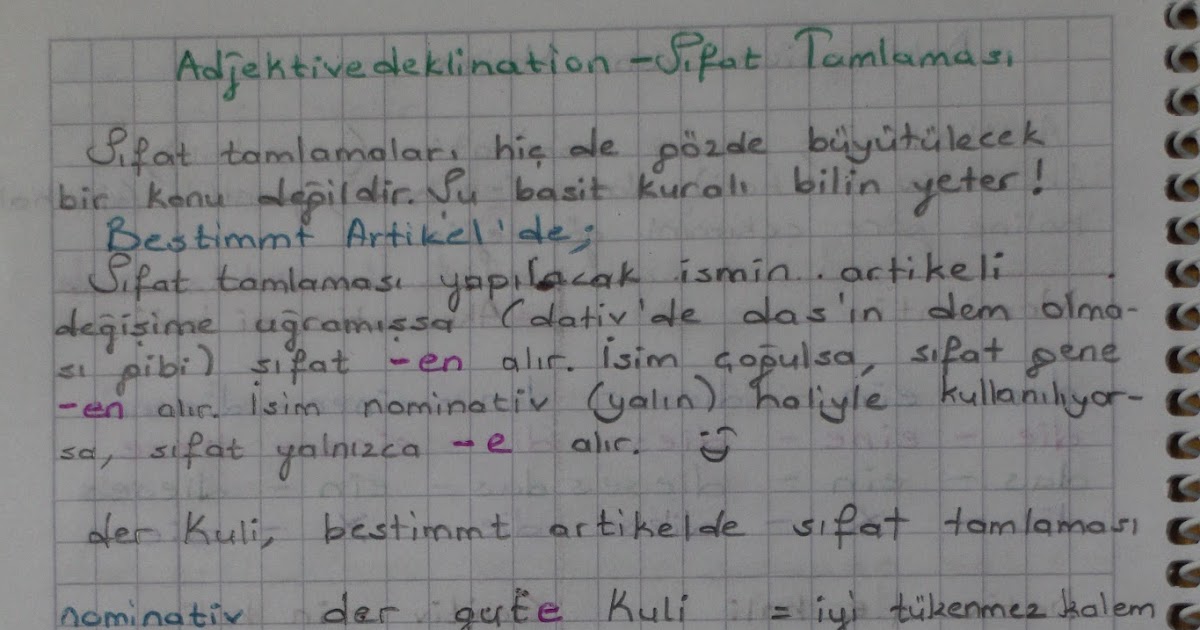 Adjektivedeklination - Sıfat Tamlaması
Sıfat tamlamaları hiç de gözde büyütülecek
bir konu değildir. Şu basit kuralı bilin yeter!
Bestimmt Artikel'de;
Sıfat tamlaması yapılacak ismin artikeli
değişime uğramışsa (dativ'de das'in dem olma-
sı gibi) sıfat -en alır. İsim çoğulsa, sıfat gene
-en alır. İsim nominativ (yalın) haliyle kullanılıyor-
sa, sıfat yalnızca -e alır.
der Kuli, bestimmt artikelde sıfat tamlaması
nominativ der gute Kuli = iyi tükenmez kalem